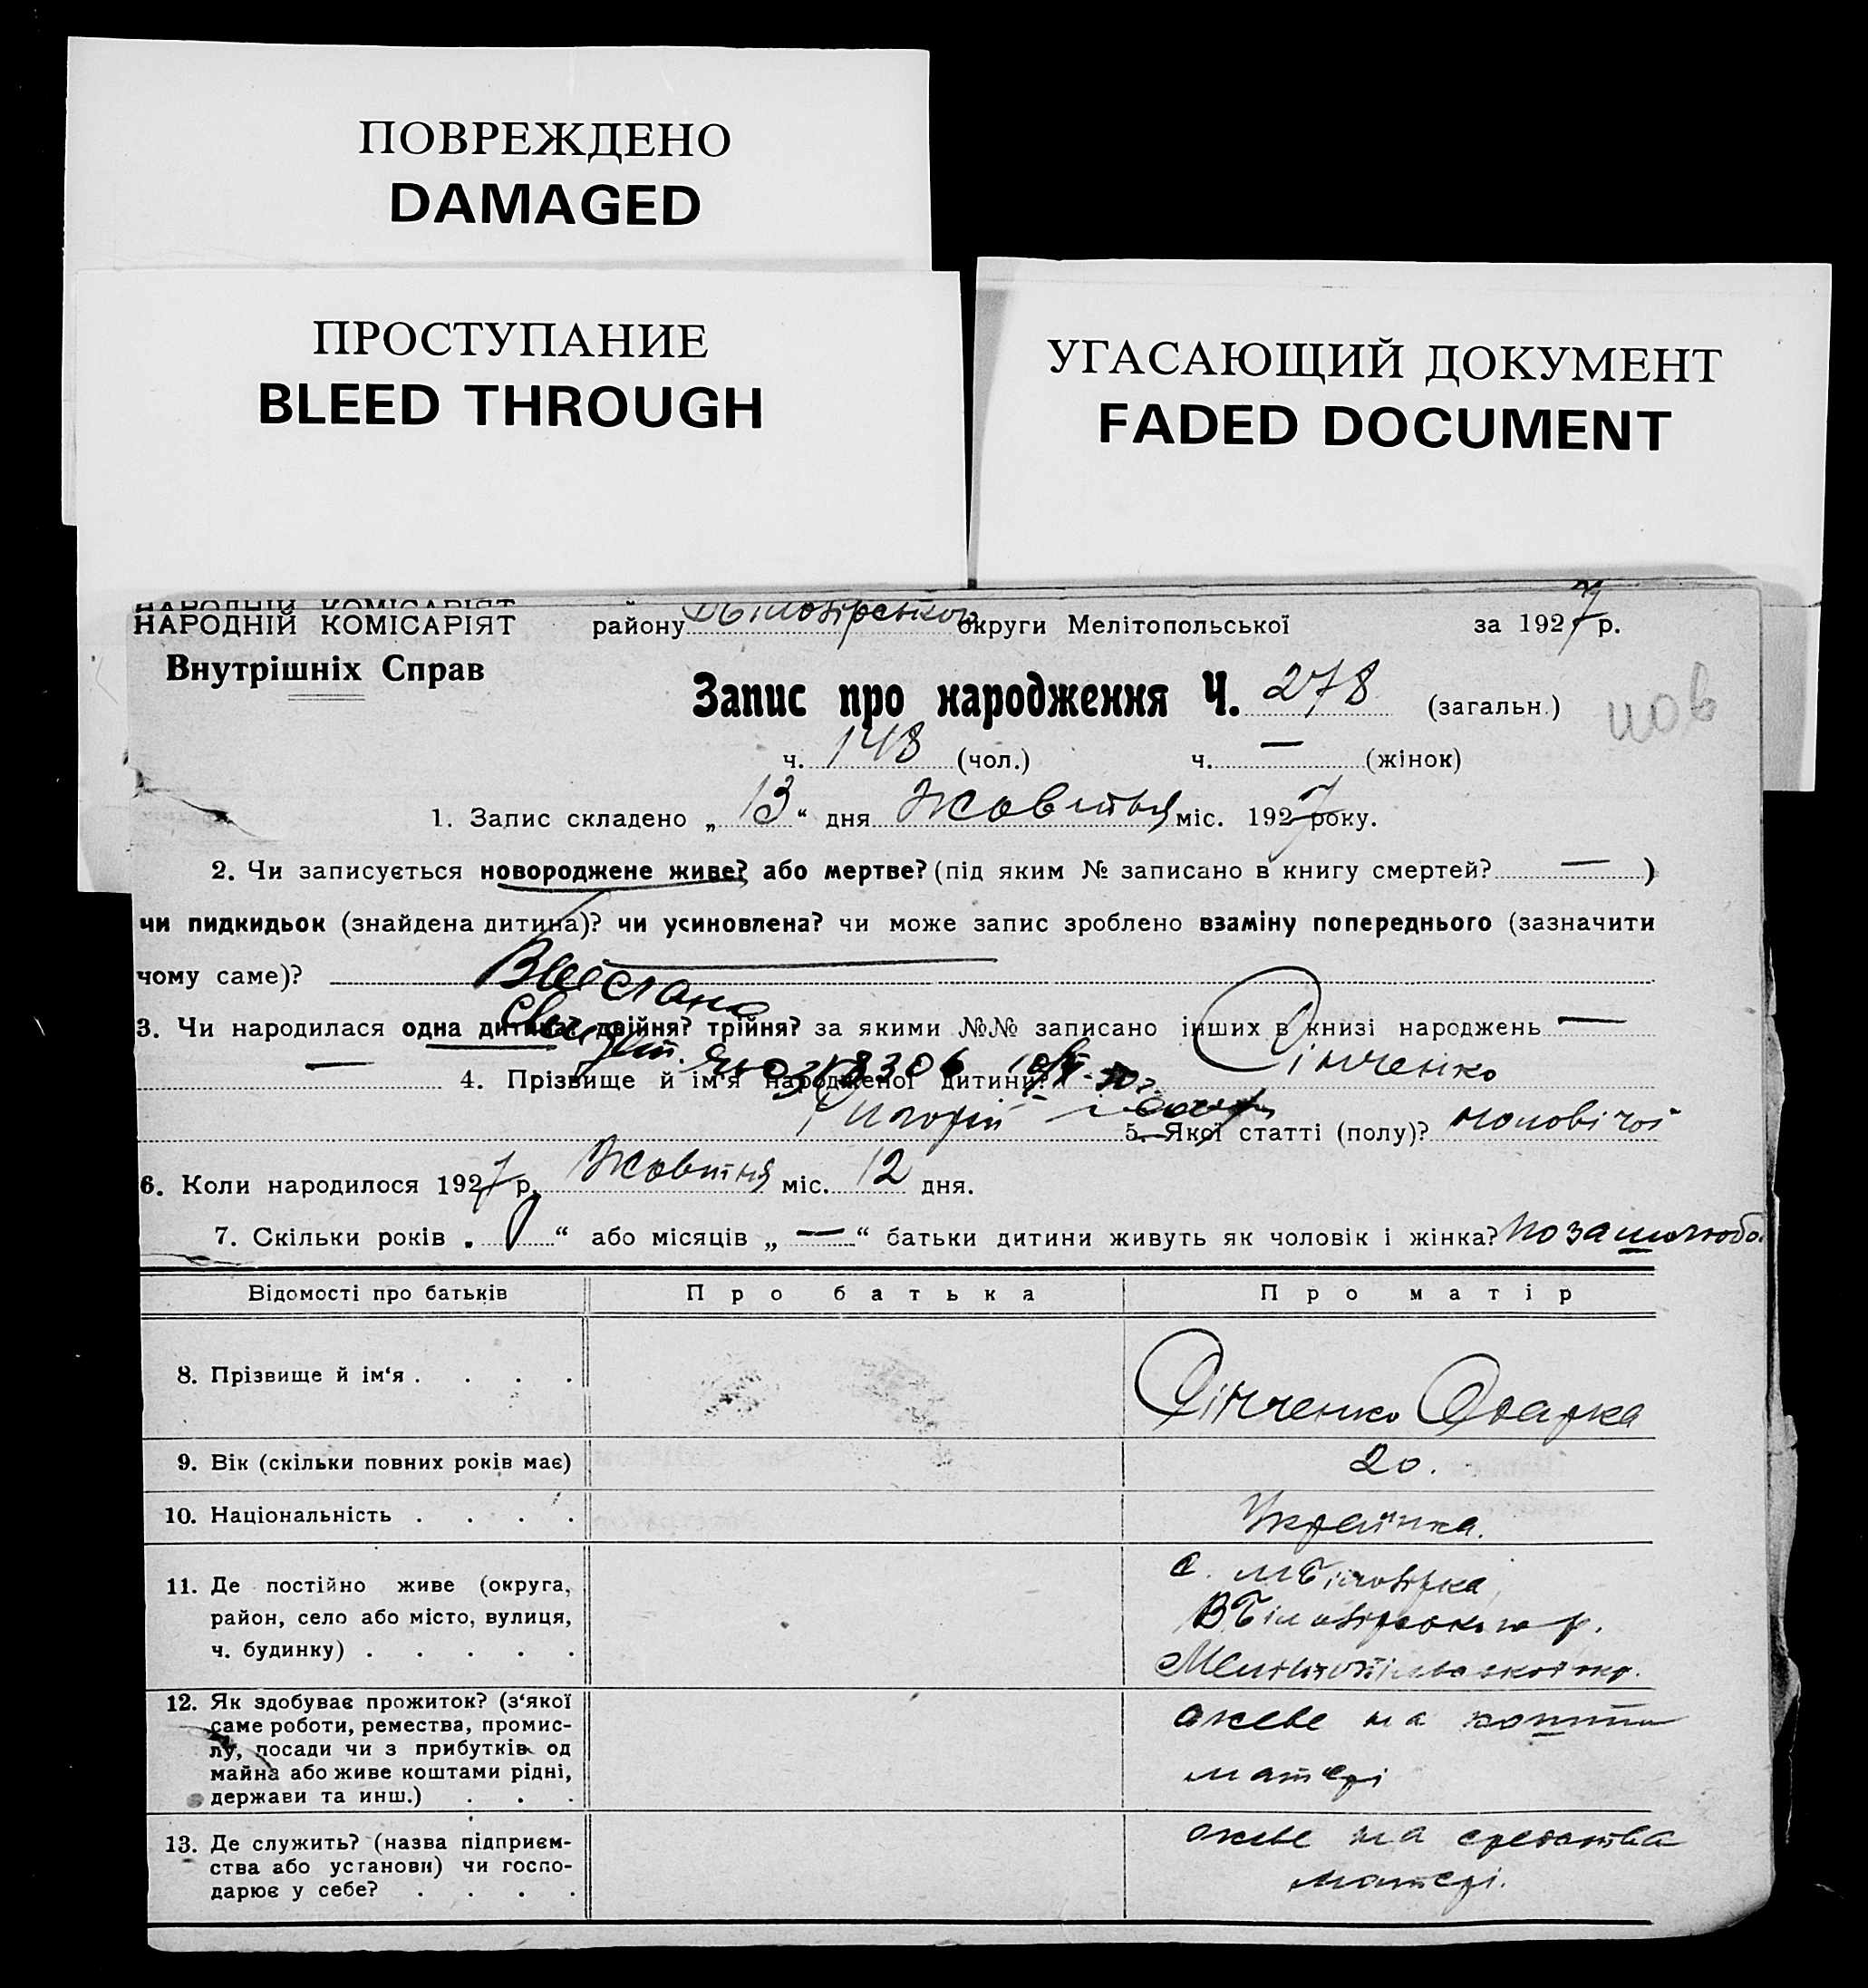 ПОВРЕЖДЕНО
DAMAGED
ПРОСТУПАНИЕ
BLEED THROUGH
УГАСАЮЩИЙ ДОКУМЕНТ
FADED DOCUMENT
НАРОДНІЙ КОМІСАРІЯТ
НАРОДНІЙ КОМІСАРІЯТ району округи Мелітопольської за 1927 р.
Внутрішніх Справ
Запис про народження Ч. 278 (загальн.)
нов
ч. 148 (чол.) ч. — (жінок)
1. Запис складено „ 13 “ дня Жовтня міс. 1927 року.
2. Чи записується новороджене живе? або мертве? (під яким № записано в книгу смертей? — )
чи пидкидьок (знайдена дитина)? чи усиновлена? чи може запис зроблено взаміну попереднього (зазначити
чому саме)?
3. Чи народилася одна дитина? двійня? трійня? за якими №№ записано інших в книзі народжень —
— 4. Прізвище й ім'я народженої дитини? Сінченко
5. Якої статті (полу)? чоловічої
6. Коли народилося 1927 р. Жовтня міс. 12 дня.
7. Скільки років „ “ або місяців „ — “ батьки дитини живуть як чоловік і жінка?
Відомості про батьків Про батька Про матір
8. Прізвище й ім‘я . . . . Сінченко Одарка
9. Вік (скільки повних років має) 20.
10. Національність . . . . Українка.
11. Де постійно живе (округа, с. МБілозірка,
район, село або місто, вулиця, р.
ч. будинку) . . . . . окр.
12. Як здобуває прожиток? (з‘якої живе на кошти
саме роботи, ремества, промис- матері
лу, посади чи з прибутків од
майна або живе коштами рідні,
держави та инш.) . . .
13. Де служить? (назва підприєм- живе на средства
ства або установи) чи госпо- матері.
дарює у себе? . . . .